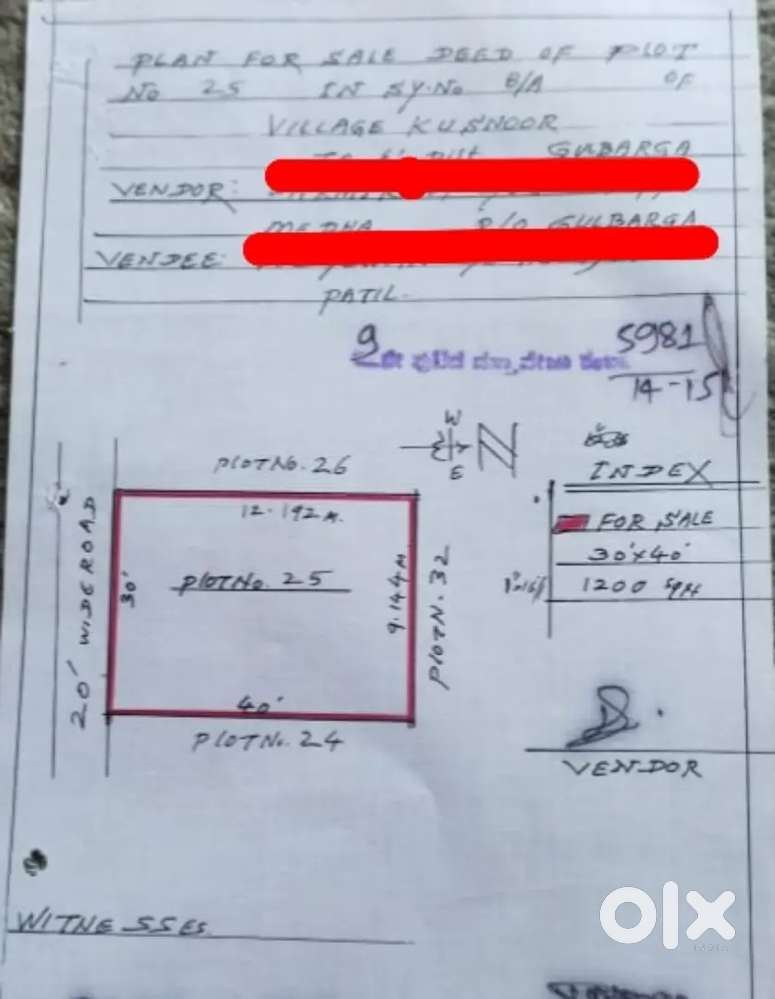 PLAN FOR SALE DEED OF PLOT
No 25 IN SY.No 8/A OF
VILLAGE KUSNOOR
GUBARGA
VENDOR:
MEDHA R/O GULBARGA
VENDEE:
PATIL.
9
5981
14-15
PLOT No. 26
W
E
N
INDEX
12.192 M.
FOR SALE
20' WIDE ROAD
30'
PLOT No. 25
9.144 M
PLOT N. 32
30'x40'
1200 Sqft
40'
PLOT No. 24
VENDOR
WITNESSES
olx